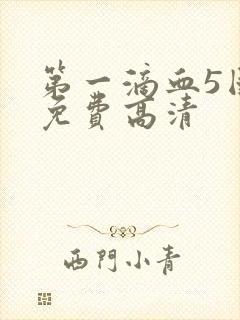 第一滴血5国
免费高清
西門小青